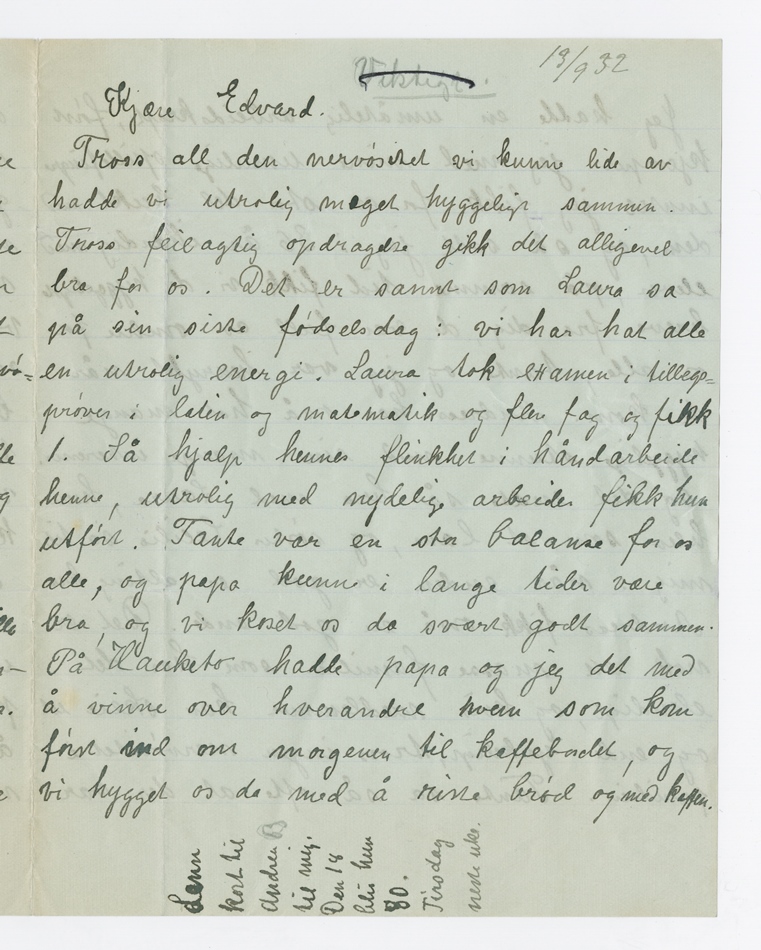 Viktig.
19/9 32
Kjære Edvard.
Tross all den nervøsitet vi kunne lide av
hadde vi utrolig meget hyggelig sammen.
Tross feilagtig opdragelse gikk det alligevel
bra for os. Det er sannt som Laura sa
på sin siste fødselsdag: vi har hat alle
en utrolig energi. Laura tok examen i tillegs=
prøver i latin og matematik og flere fag og fikk
1. Så hjalp hennes flinkhet i håndarbeide
henne, utrolig med nydelige arbeider fikk hun
utført. Tante var en stor balanse for os
alle, og papa kunne i lange tider være
bra, og vi koset os da svært godt sammen.
På Hauketo hadde papa og jeg det med
å vinne over hverandre hvem som kom
først ind om morgenen til kaffebordet, og
vi hygget os da med å riste brød og med kaffen.
Senn
kort til
Andrea B
til mig.
Den 18
blir hun
80.
Tirsdag
neste uke.